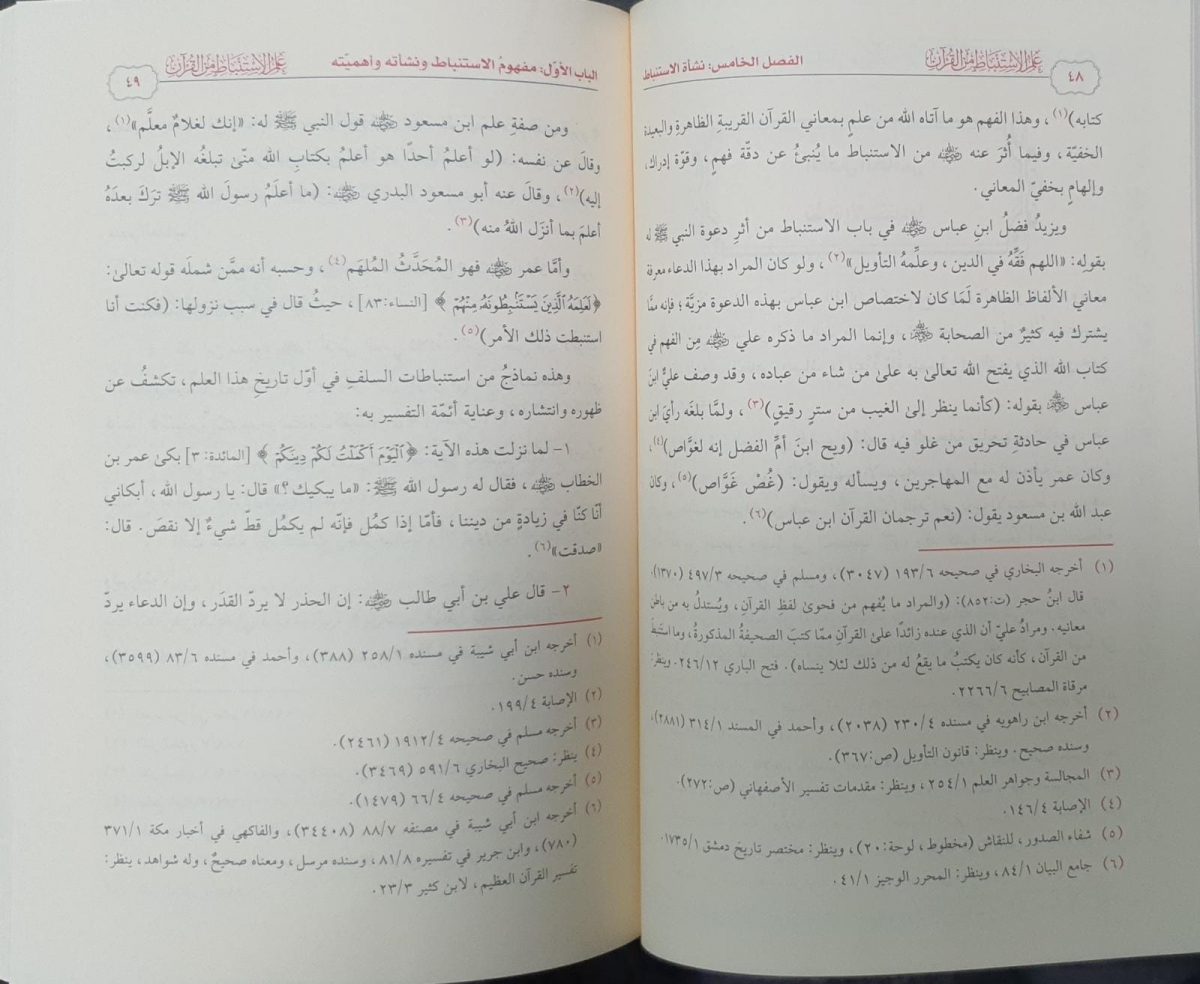 ٤٨
علم الاستنباط من القرآن
الفصل الخامس: نشأة الاستنباط
كتابه)(١)، وهذا الفهم هو ما آتاه الله من علمٍ بمعاني القرآن القريبةِ الظاهرةِ والبعيدة
الخفيّة، وفيما أُثرَ عنه ﵁ من الاستنباط ما يُنبئُ عن دقّة فهمٍ، وقوّة إدراك،
وإلهامٍ بخفيّ المعاني.
ويزيدُ فضلُ ابنِ عباس ﵁ في باب الاستنباط من أثرِ دعوة النبي ﷺ له
بقولِه: «اللهم فَقِّهْهُ في الدين، وعلِّمهُ التأويل»(٢)، ولو كان المراد بهذا الدعاء معرفة
معاني الألفاظ الظاهرة لَمَا كان لاختصاص ابن عباس بهذه الدعوة مزيَّة؛ فإنه ممَّا
يشترك فيه كثيرٌ من الصحابة ﵃، وإنما المراد ما ذكره علي ﵁ مِن الفهم في
كتاب الله الذي يفتح الله تعالى به علىٰ من شاء من عباده، وقد وصف عليٌّ ابنَ
عباس ﵃ بقوله: (كأنما ينظر إلىٰ الغيب من سترٍ رقيقٍ)(٣)، ولمَّا بلغه رأيُ ابن
عباس في حادثةِ تحريق من غلو فيه قال: (ويح ابنَ أمِّ الفضل إنه لغوَّاص)(٤)،
وكان عمر يأذن له مع المهاجرين، ويسأله ويقول: (غُصْ غَوَّاص)(٥)، وكان
عبد الله بن مسعود يقول: (نعم ترجمان القرآن ابن عباس)(٦).
(١) أخرجه البخاري في صحيحه ١٩٣/٦ (٣٠٤٧)، ومسلم في صحيحه ٤٩٧/٣ (١٣٧٠).
قال ابنُ حجر (ت:٨٥٢): (والمراد ما يُفهم من فحوىٰ لفظِ القرآنِ، ويُستدلُ به من باطن
معانيه. ومرادُ عليّ أن الذي عنده زائدًا علىٰ القرآنِ ممّا كتبَ الصحيفةُ المذكورةُ، وما استَنبطَ
من القرآن، كأنه كان يكتبُ ما يقعُ له من ذلك لئلا ينساه). فتح الباري ٢٤٦/١٢. وينظر:
مرقاة المصابيح ٢٢٦٦/٦.
(٢) أخرجه ابن راهويه في مسنده ٢٣٠/٤ (٢٠٣٨)، وأحمد في المسند ٣١٤/١ (٢٨٨١)،
وسنده صحيح. وينظر: قانون التأويل (ص:٣٦٧).
(٣) المجالسة وجواهر العلم ٢٥٤/١، وينظر: مقدمات تفسير الأصفهاني (ص:٢٧٢).
(٤) الإصابة ١٤٦/٤.
(٥) شفاء الصدور، للنقاش (مخطوط، لوحة:٢٠)، وينظر: مختصر تاريخ دمشق ١٧٣٥/١.
(٦) جامع البيان ٨٤/١، وينظر: المحرر الوجيز ٤١/١.
الباب الأوّل: مفهومُ الاستنباط ونشأته وأهميّته
علم الاستنباط من القرآن
٤٩
ومن صفةِ علم ابن مسعود ﵁ قول النبي ﷺ له: «إنك لغلامٌ معلَّم»(١)،
وقالَ عن نفسه: (لو أعلمُ أحدًا هو أعلمُ بكتابِ الله منّىٰ تبلغُه الإبلُ لركبتُ
إليه)(٢)، وقالَ عنه أبو مسعود البدري ﵁: (ما أعلَمُ رسولَ الله ﷺ تركَ بعدَهُ
أعلمَ بما أنزَل اللهُ منه)(٣).
وأمَّا عمر ﵁ فهو المُحَدَّثُ المُلهَم(٤)، وحسبه أنه ممَّن شملَه قوله تعالىٰ:
﴿لَعَلِمَهُ ٱلَّذِينَ يَسْتَنۢبِطُونَهُۥ مِنْهُمْ﴾ [النساء:٨٣]، حيثُ قال في سبب نزولها: (فكنت أنا
استنبطت ذلك الأمر)(٥).
وهذه نماذجُ من استنباطات السلفِ في أوّل تاريخِ هذا العلم، تكشفُ عن
ظهوره وانتشاره، وعناية أئمّة التفسير به:
١- لما نزلت هذه الآية: ﴿ٱلْيَوْمَ أَكْمَلْتُ لَكُمْ دِينَكُمْ﴾ [المائدة: ٣] بكىٰ عمر بن
الخطاب ﵁، فقال له رسول الله ﷺ: «ما يبكيك؟» قال: يا رسول الله، أبكاني
أنّا كنّا في زيادةٍ من ديننا، فأمّا إذا كمُل فإنّه لم يكمُل قطّ شيءٌ إلا نقصَ. قال:
«صدقت»(٦).
٢- قال علي بن أبي طالب ﵁: إن الحذر لا يردّ القدَر، وإن الدعاء يردّ
(١) أخرجه ابن أبي شيبة في مسنده ٢٥٨/١ (٣٨٨)، وأحمد في مسنده ٨٣/٦ (٣٥٩٩)،
وسنده حسن.
(٢) الإصابة ١٩٩/٤.
(٣) أخرجه مسلم في صحيحه ١٩١٢/٤ (٢٤٦١).
(٤) ينظر: صحيح البخاري ٥٩١/٦ (٣٤٦٩).
(٥) أخرجه مسلم في صحيحه ٦٦/٤ (١٤٧٩).
(٦) أخرجه ابن أبي شيبة في مصنفه ٨٨/٧ (٣٤٤٠٨)، والفاكهي في أخبار مكة ٣٧١/١
(٧٨٠)، وابن جرير في تفسيره ٨١/٨، وسنده مرسل، ومعناه صحيحٌ، وله شواهد، ينظر:
تفسير القرآن العظيم، لابن كثير ٢٣/٣.